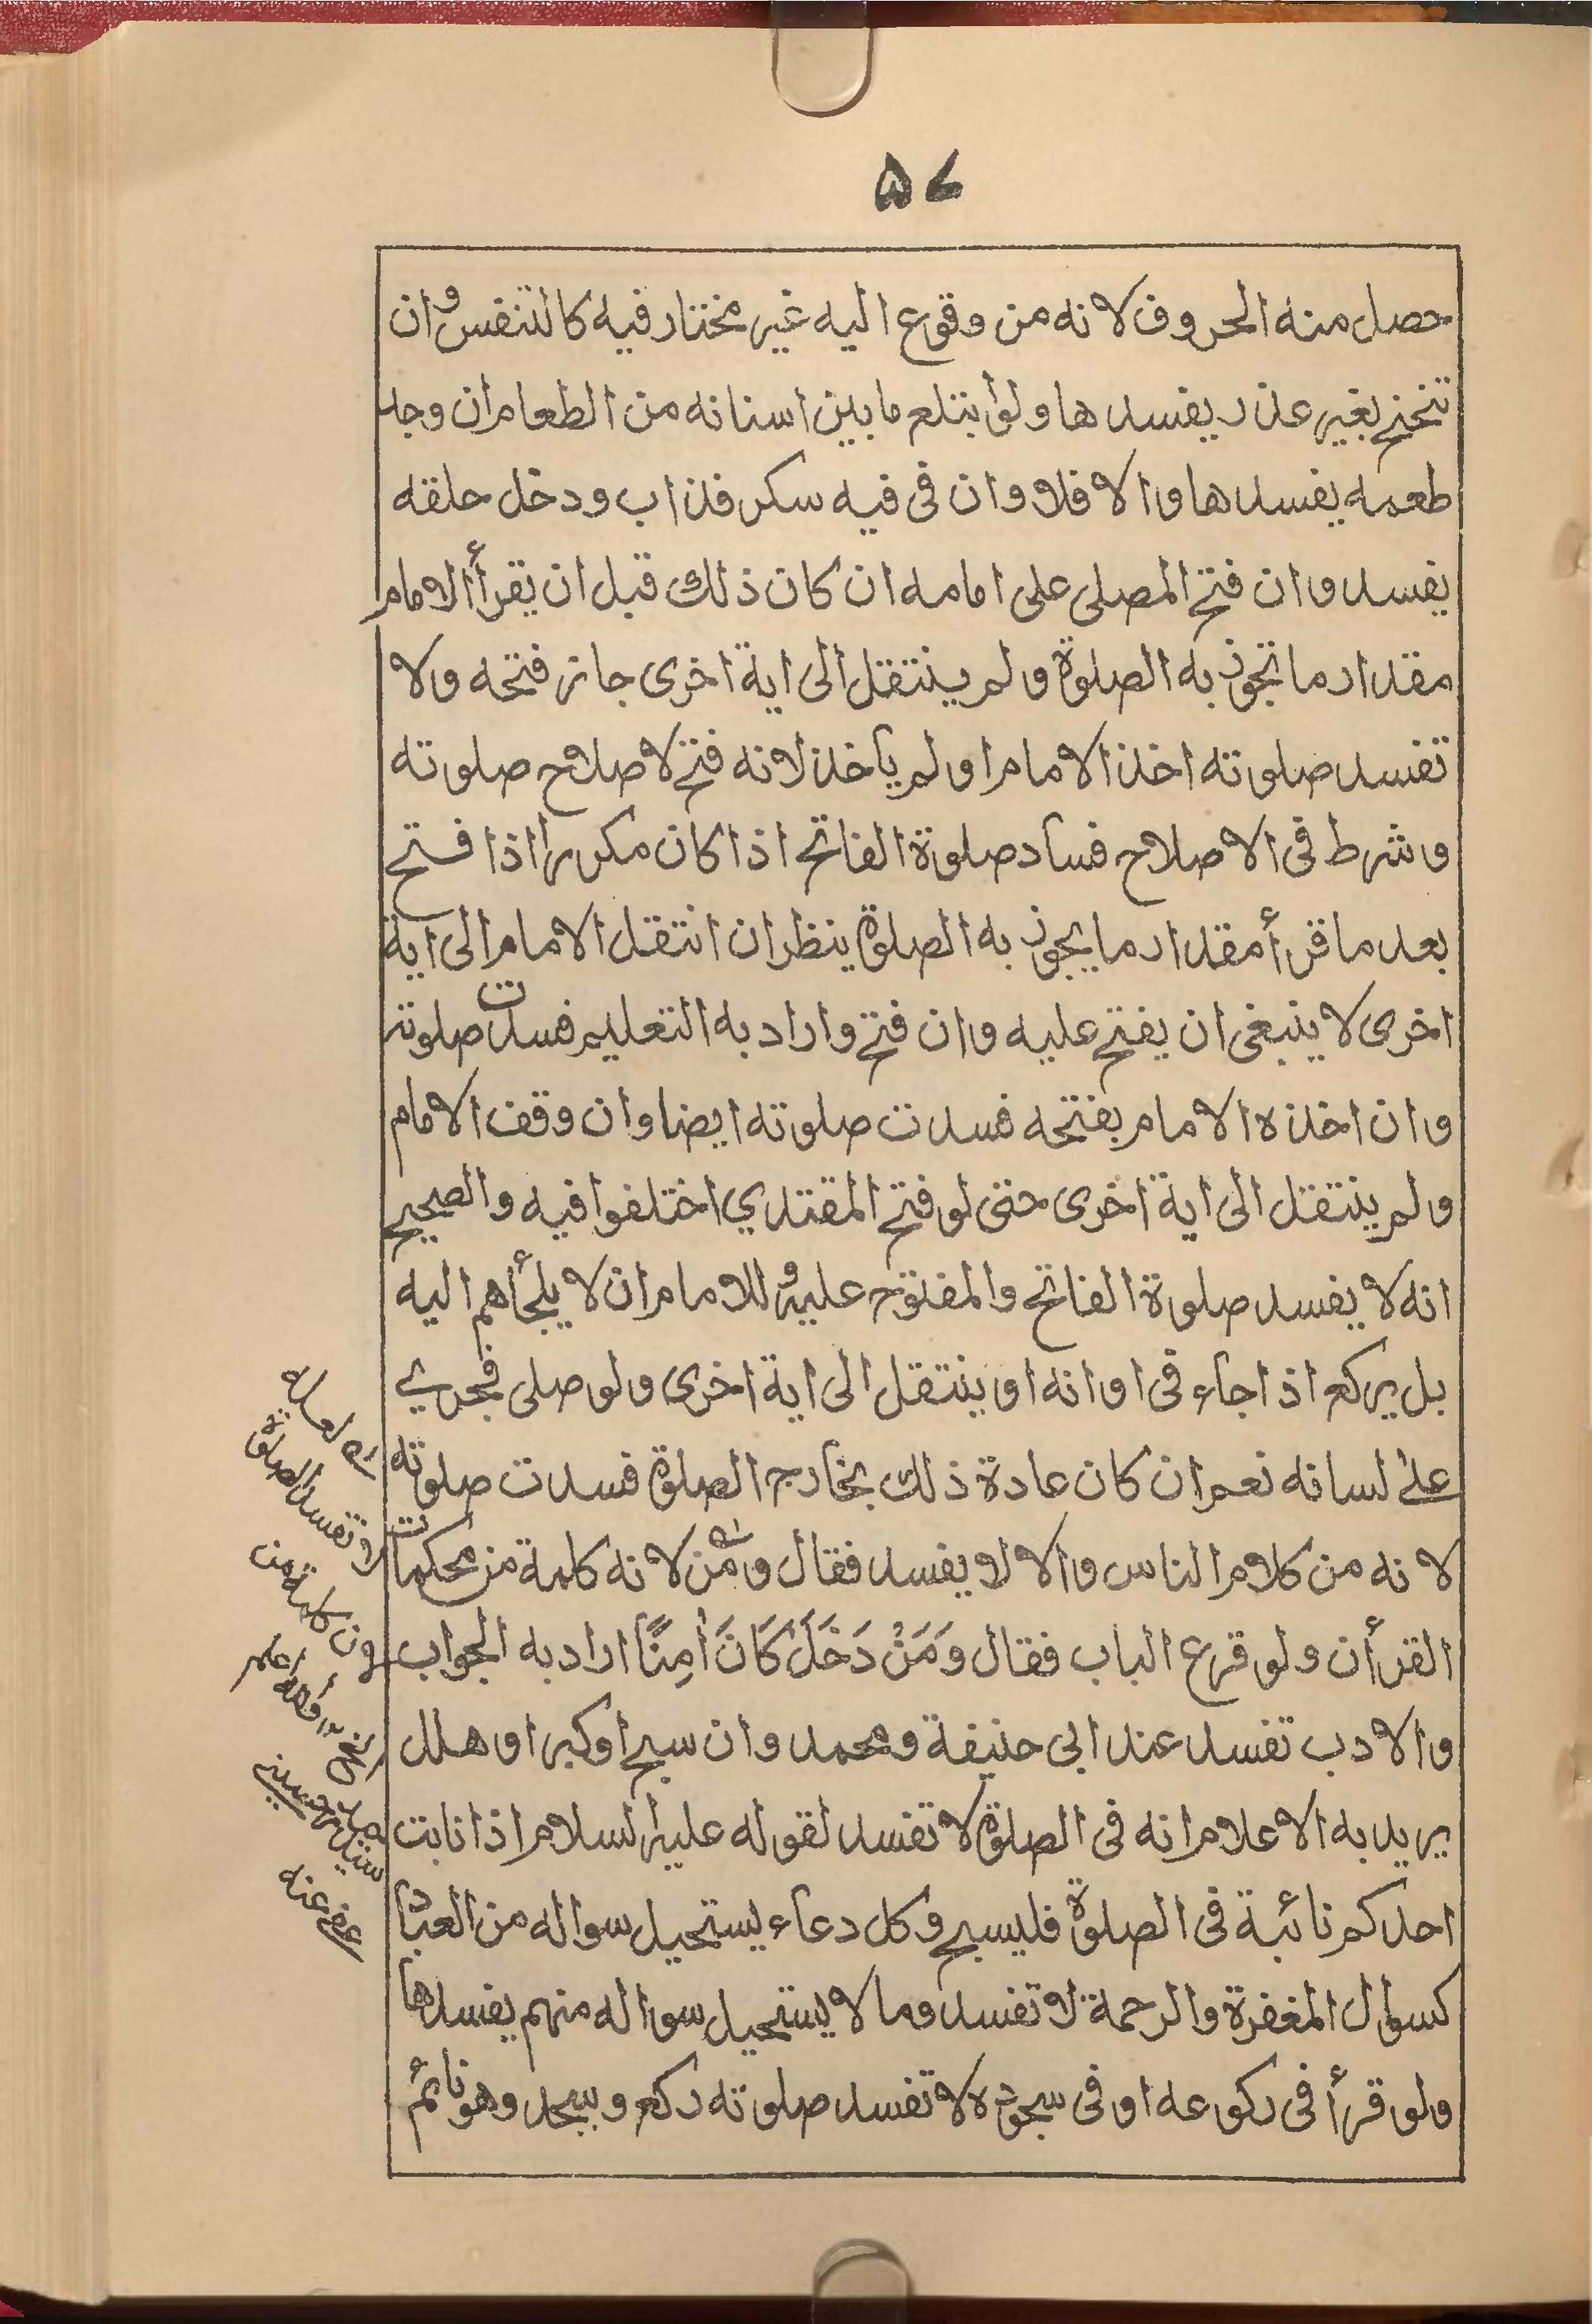 ۵۷
حصل منه الحروف لانه من وقوع اليه غير مختار فيه كالتنفس وان
تنحنح بغير عذر يفسدها ولوأبتلع ما بين اسنانه من الطعام ان وجد
طعمه يفسدها والا فلا وان فى فيه سكر فذاب ودخل حلقه
يفسد وان فتح المصلى على امامه ان كان ذلك قبل ان يقرأ الامام
مقدار ما تجوز به الصلوة ولم ينتقل الى اية اخرى جاز فتحه ولا
تفسد صلوته اخذ الامام او لم يأخذ لانه فتح لاصلاح صلوته
وشرط فى الاصلاح فساد صلوة الفاتح اذا كان مكررا اذا فتح
بعد ما قرأ مقدار ما يجوز به الصلوة ينظر ان انتقل الامام الى اية
اخرى لا ينبغى ان يفتح عليه وان فتح واراد به التعليم فسدت صلوته
وان اخذه الامام بفتحه فسدت صلوته ايضا وان وقف الامام
ولم ينتقل الى اية اخرى حتى لو فتح المقتدي اختلفوا فيه والصحيح
انه لا يفسد صلوة الفاتح والمفتوح عليه وللامام ان لا يلجأهم اليه
بل يركع اذا جاء فى اوانه او ينتقل الى اية اخرى ولو صلى فجرى
على لسانه نعم ان كان عادة ذلك بخارج الصلوة فسدت صلوته
لانه من كلام الناس والا لا يفسد فقال ومن لانه كلمة من محكمات
القرأن ولو قرع الباب فقال وَمَنْ دَخَلَ كَانَ اٰمِنًا اراد به الجواب
والادب تفسد عند ابى حنيفة ومحمد وان سبح او كبر او هلل
يريد به الاعلام انه فى الصلوة لا تفسد لقوله عليه السلام اذا نابت
احدكم نائبة فى الصلوة فليسبح وكل دعاء يستحيل سواله من العباد
كسوال المغفرة والرحمة لا تفسد وما لا يستحيل سواله منهم يفسدها
ولو قرأ فى ركوعه او فى سجوده لا تفسد صلوته ركع وسجد وهو نائم
لا تفسد الصلوة
كلمة من
والله اعلم
عفى عنه